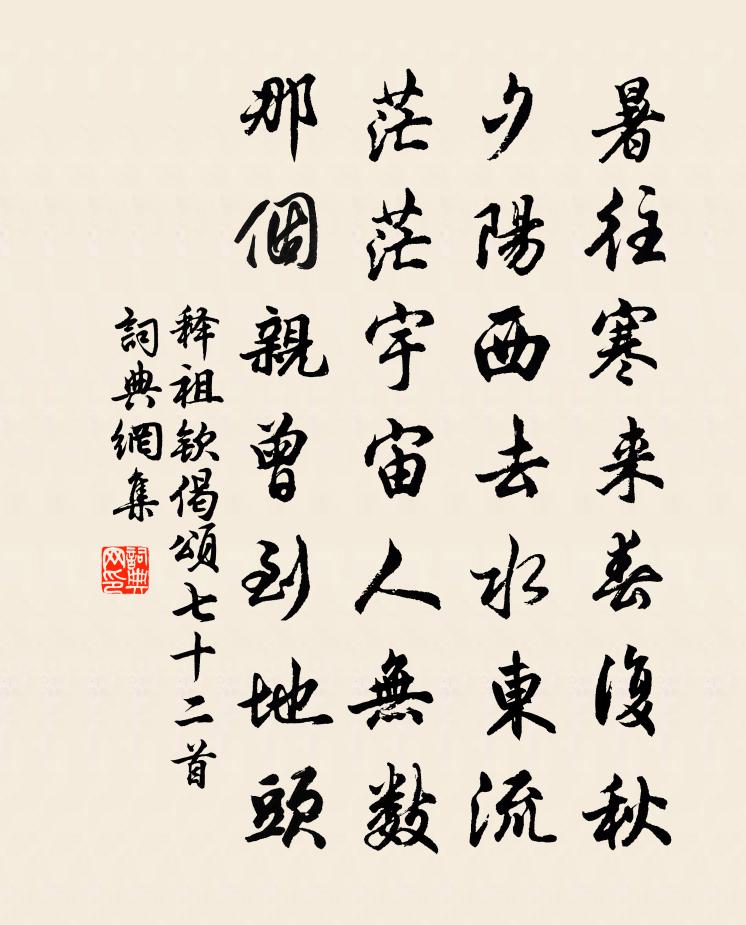 暑往寒来春復秋
夕陽西去水東流
茫茫宇宙人無數
那個親曾到地頭
释祖钦偈頌七十二首
詞典網集
詞典网印